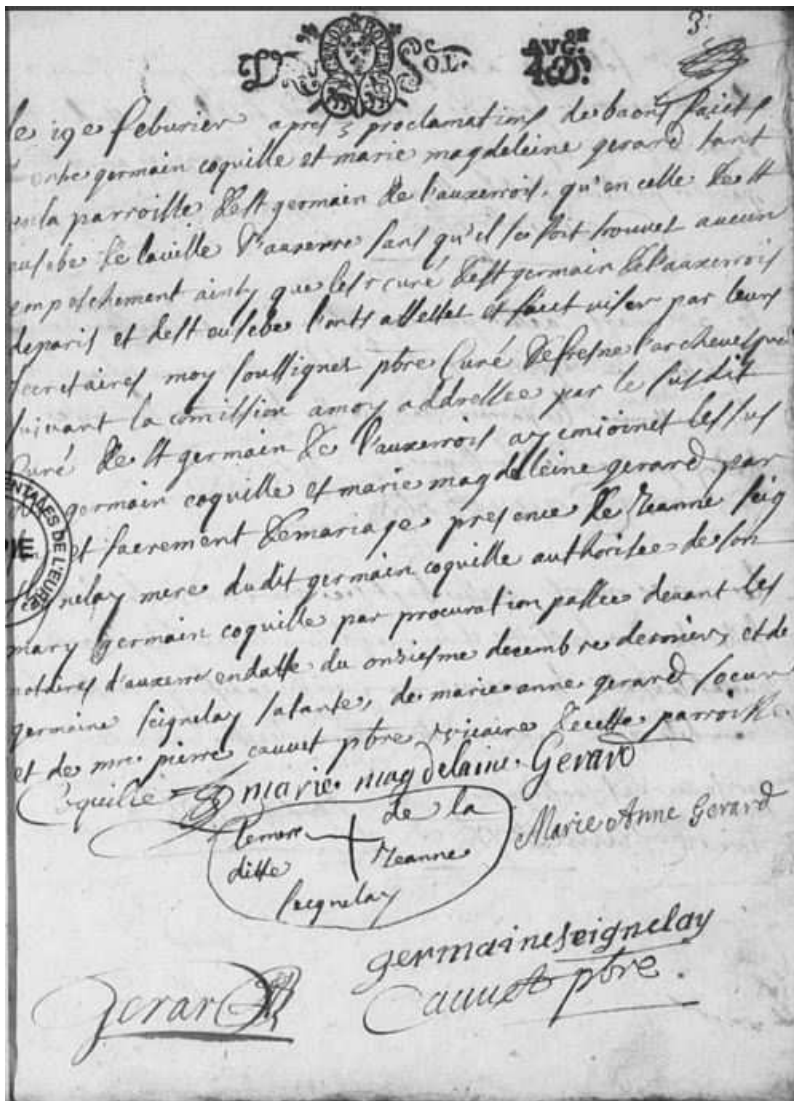 3.
GEN. DE ROVEN
SOL. AVG.on
le 19e feburier apres 3 proclamations de bans faicts
entre germain coquille et marie magdeleine gerard tant
en la parroisse de st germain de l'auxerrois, qu'en celle de st
eusebe de la ville d'auxerre sans qu'il se soit trouvet aucun
empeschement ainsy que les rs curé de st germain de l'auxerrois
de paris et de st eusebe l'onts attestet et faict viser par leurs
secretaires moy soussignet pbre curé de fresne l'archevesque
suivant la comission a moy addressee par le susdit
curé de st germain de l'auxerrois ay conjoinct les sus
germain coquille et marie magdeleine gerard par
et sacrement de mariage presence de Jeanne seig
seignelay mere dudit germain coquille authorisee de son
mary germain coquille par procuration passee devant les
notaires d'auxerre en datte du onziesme decembre dernier, et de
germaine seignelay sa tante, de marie anne gerard soeur
et de mre pierre cauvet pbre vicaire de cette parroisse.
Coquille marie magdelaine Gerard
de la
ditte Jeanne
seignelay
Marie Anne Gerard
germaine seignelay
Cauvet pbre.
Gerard
ENTALES DE L'EURE